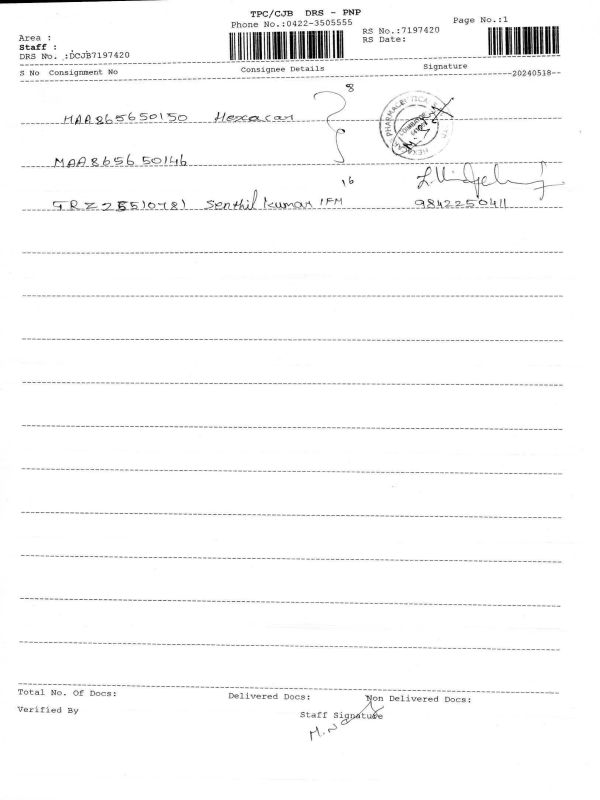 TPC/CJB DRS - PNP
Phone No.:0422-3505555
Page No.:1
RS No.:7197420
RS Date:
Area :
Staff :
DRS No. :DCJB7197420
S No Consignment No Consignee Details Signature
--20240518--
8
MAA865650150 Hexacar
PHARMACEUTICA
MAA865650146
16
9842250411
Senthil Kumar IFM
Total No. Of Docs: Delivered Docs: Non Delivered Docs:
Verified By Staff Signature